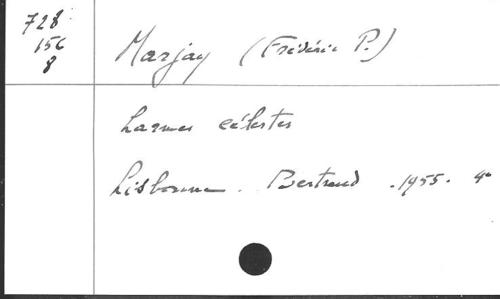 728
156
8
Marjay (Frédéric P.)
Larmes célestes
Lisbonne. Bertrand. 1955. 4°